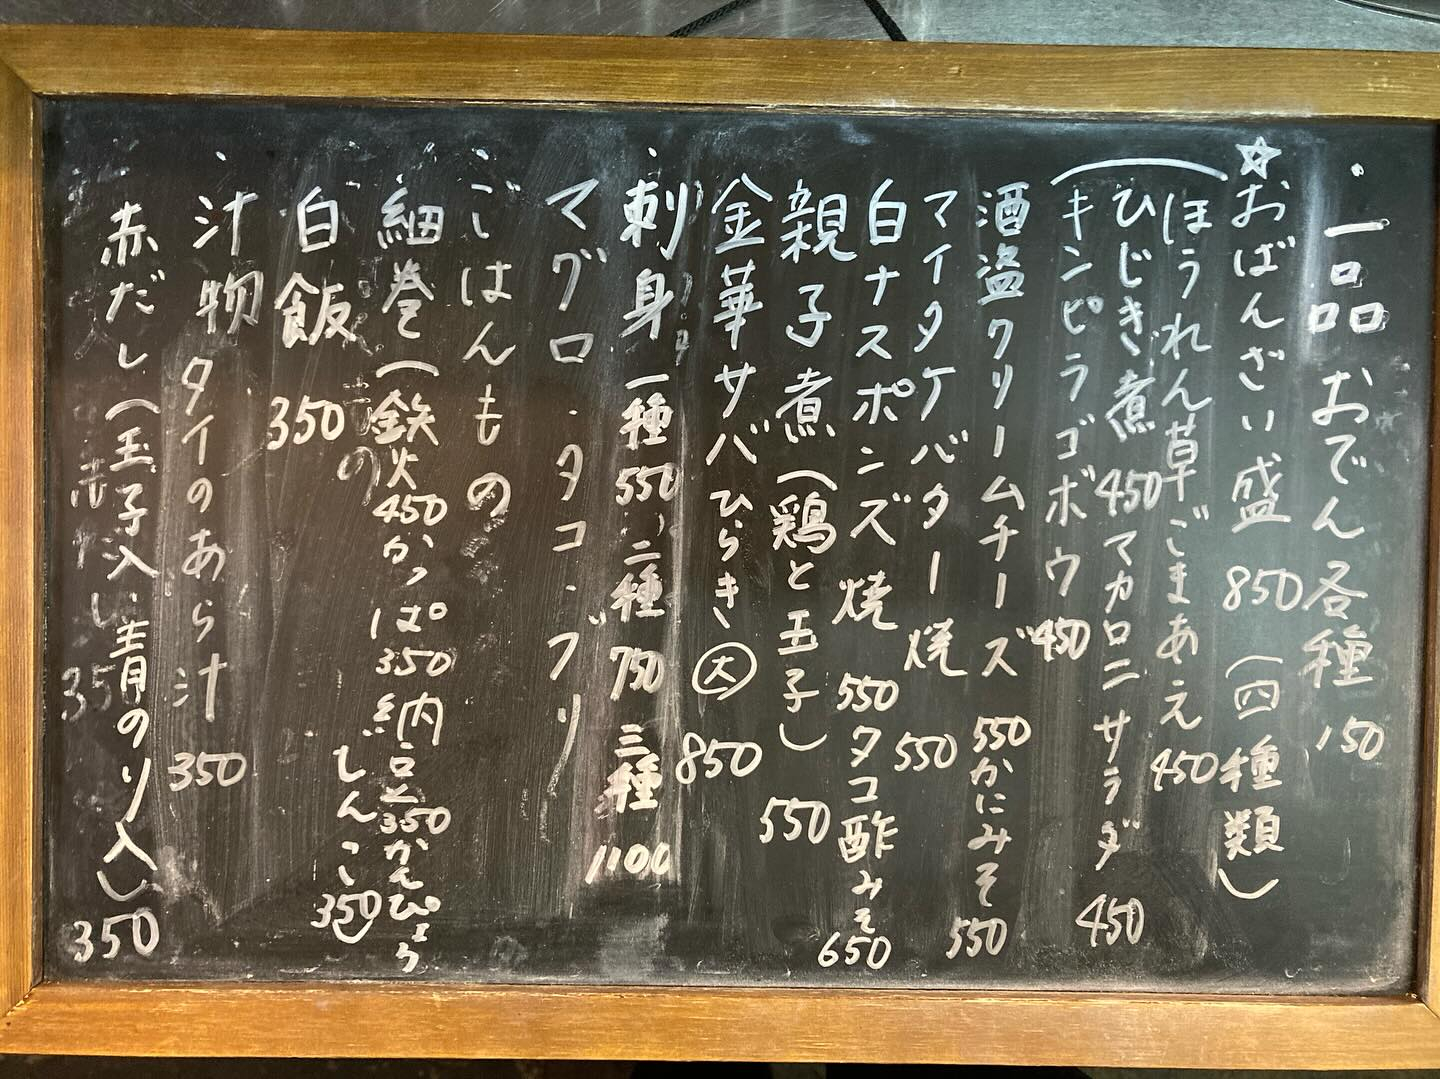 ・一品 おでん各種 150
☆おばんざい盛 850 (四種類)
(ほうれん草ごまあえ 450
ひじき煮 450 マカロニサラダ 450
キンピラゴボウ 450
酒盗クリームチーズ 550 かにみそ 550
マイタケバター焼 550
白ナスポンズ焼 550 タコ酢みそ 650
親子煮(鶏と玉子) 550
金華サバひらき 大 850
・刺身 一種 550、二種 750 三種 1100
マグロ・タコ・ブリ
・ごはんもの
細巻(鉄火 450 かっぱ 350 納豆 350 かんぴょう
じんこ 350)
白飯 350
・汁物 タイのあら汁 350
赤だし(玉子入、青のり入) 350